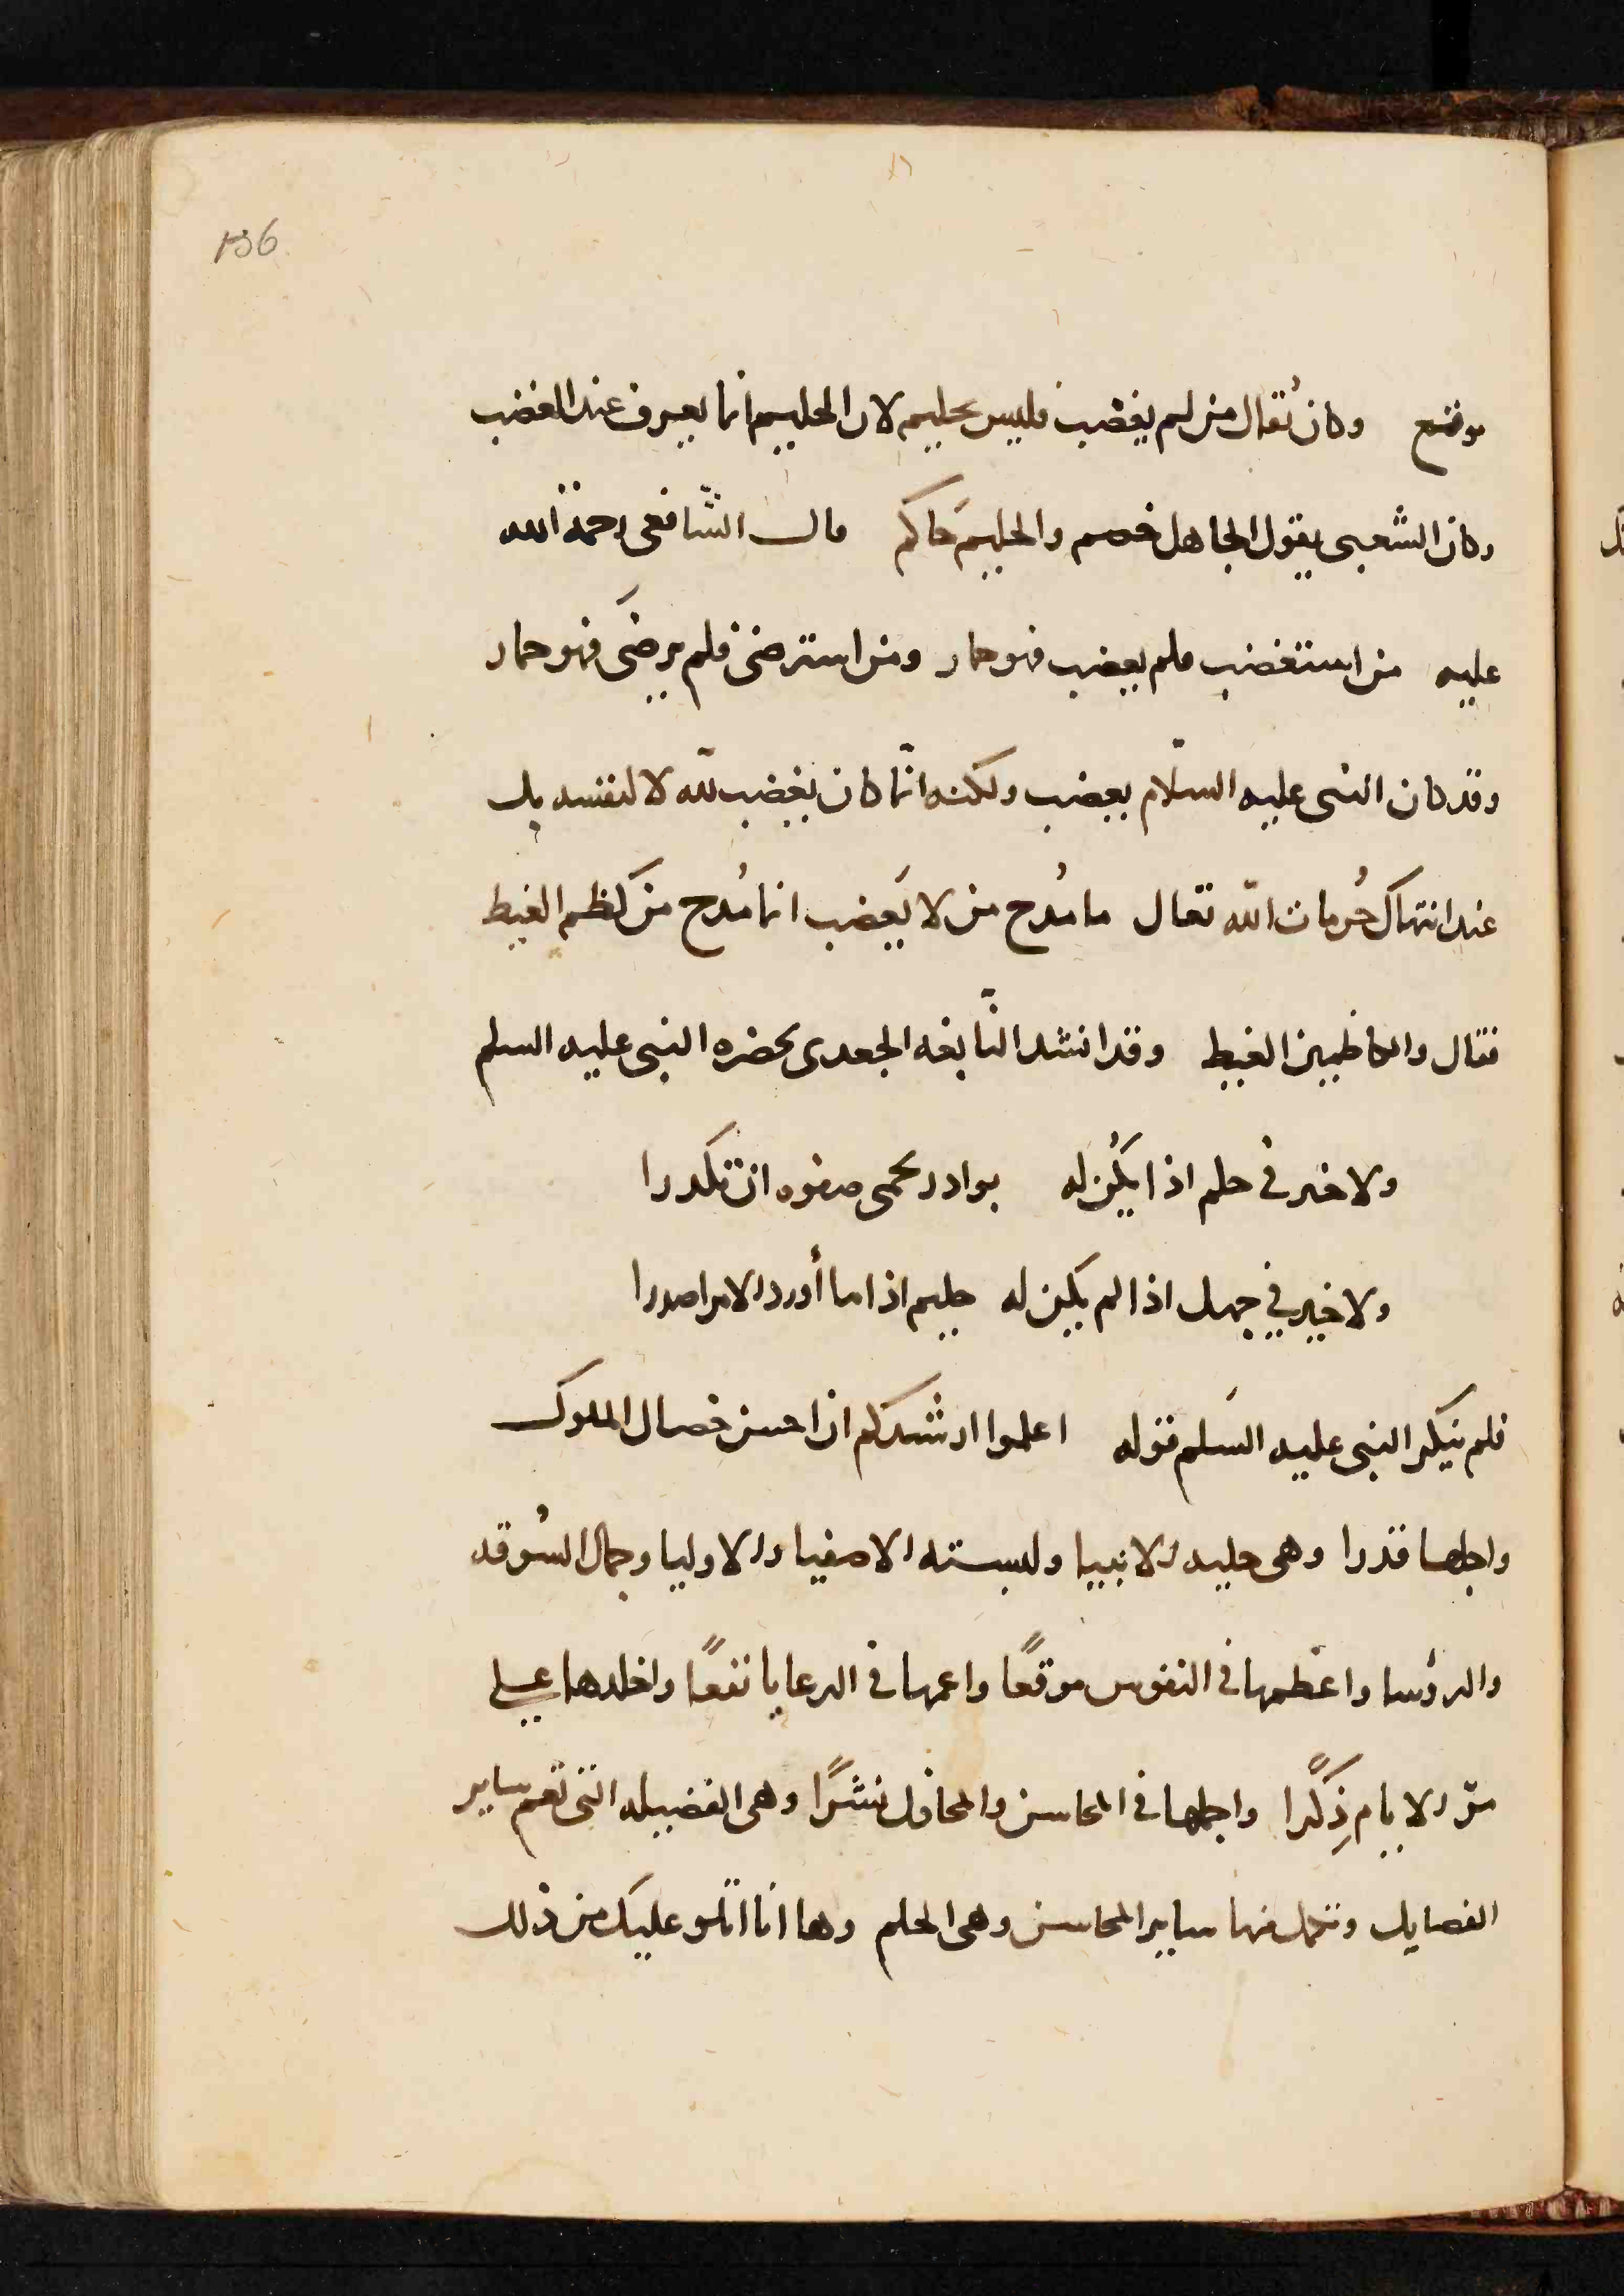 136
موضع وكان يُقال من لم يغضب فليس بحليم لان الحليم انما يعرف عند الغضب
وكان الشعبى يقول الجاهل خصم والحليم حاكم قال الشّافعى رحمة الله
عليه من استغضب فلم يغضب فهو حمار ومن استرضى فلم يرضَى فهو حمار
وقد كان النبى عليه السلام يغضب ولكنه انّما كان يغضب لله لا لنفسه بل
عند انتهاك حُرمات الله تعالى ما مُدح من لا يَغضب انما مُدح من كظم الغيظ
فقال والكاظمين الغيظ وقد انشد النّابغه الجعدى بحضره النبى عليه السلم
ولا خير فى حلم اذا يكُن له بوادر تحمى صفوه ان تكدرا
ولا خير فى جهل اذا لم يكن له حليم اذا ما أورد الامر اصدرا
فلم ينكر النبى عليه السَلم قوله اعلموا ارشدكم ان احسن خصال الملوك
واجلها قدرا وهى حليه الانبيا ولبسته الاصفيا والاوليا وجمال السُوقه
والرؤسا واعظمها فى النفوس موقعًا واعمها فى الرعايا نفعًا واخلدها على
مرّ الايام ذِكرًا واجملها فى المحاسن والمحافل نشرًا وهى الفضيله التى تعم ساير
الفضايل وتحمل منها ساير المحاسن وهى الحلم وها انا اتلو عليك من ذلك